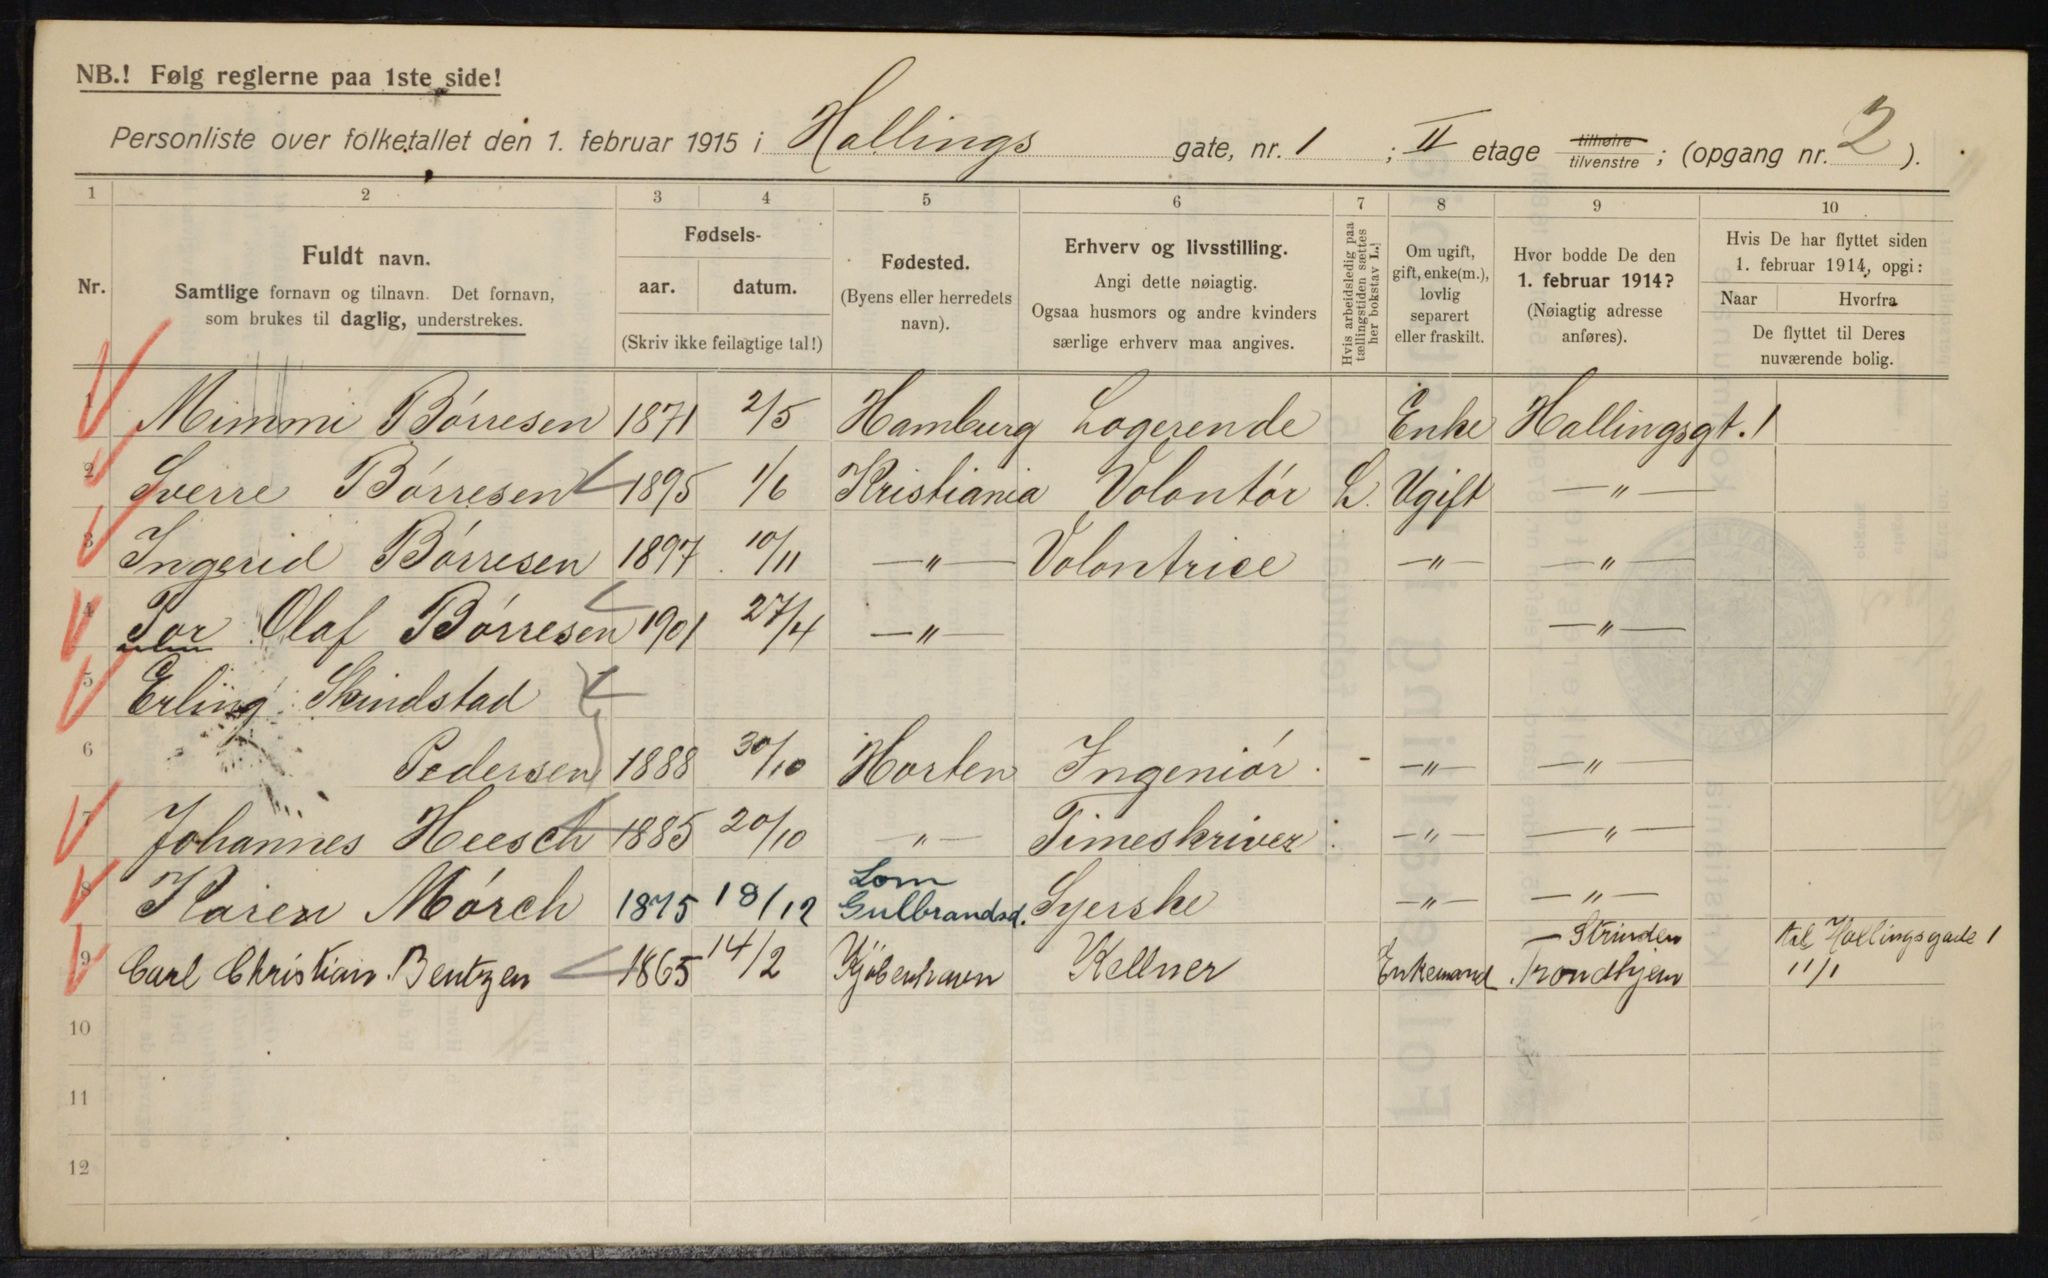 NB.! Følg reglerne paa 1ste side!
Personliste over folketallet den 1. februar 1915 i Hallings gate, nr. 1 ; II etage tilhøire tilvenstre ; (opgang nr. 2 ).
1 2 3 4 5 6 7 8 9 10
Nr.
Fuldt navn.
Samtlige fornavn og tilnavn. Det fornavn,
som brukes til daglig, understrekes.
Fødsels-
aar. datum.
(Skriv ikke feilagtige tal!)
Fødested.
(Byens eller herredets
navn).
Erhverv og livsstilling.
Angi dette nøiagtig.
Ogsaa husmors og andre kvinders
særlige erhverv maa angives.
Hvis arbeidsledig paa
tællingstiden sættes
her bokstav L.!
Om ugift,
gift, enke(m.),
lovlig
separert
eller fraskilt.
Hvor bodde De den
1. februar 1914?
(Nøiagtig adresse
anføres).
Hvis De har flyttet siden
1. februar 1914, opgi:
Naar Hvorfra
De flyttet til Deres
nuværende bolig.
1 Mimmi Børresen 1871 2/5 Hamburg Logerende Enke Hallingsgt. 1
2 Sverre Børresen 1895 1/6 Kristiania Volontør L. Ugift — " —
3 Ingerid Børresen 1897 10/11 — " — Volontrice — " — — " —
4 Tor Olaf Børresen 1901 27/4 — " — — " —
5 Erling Skindstad
6 Pedersen 1888 30/10 Horten Ingeniør. - — " — — " —
7 Johannes Heesch 1885 20/10 — " — Timeskriver — " — — " —
8 Karen Mørch 1875 18/12 Lom Gulbrandsd. Syerske — " — — " —
9 Carl Christian Bentzen 1865 14/2 Kjøbenhavn Kellner Enkemand — Strinden Trondhjem til Hallingsgade 1
11/1
10
11
12